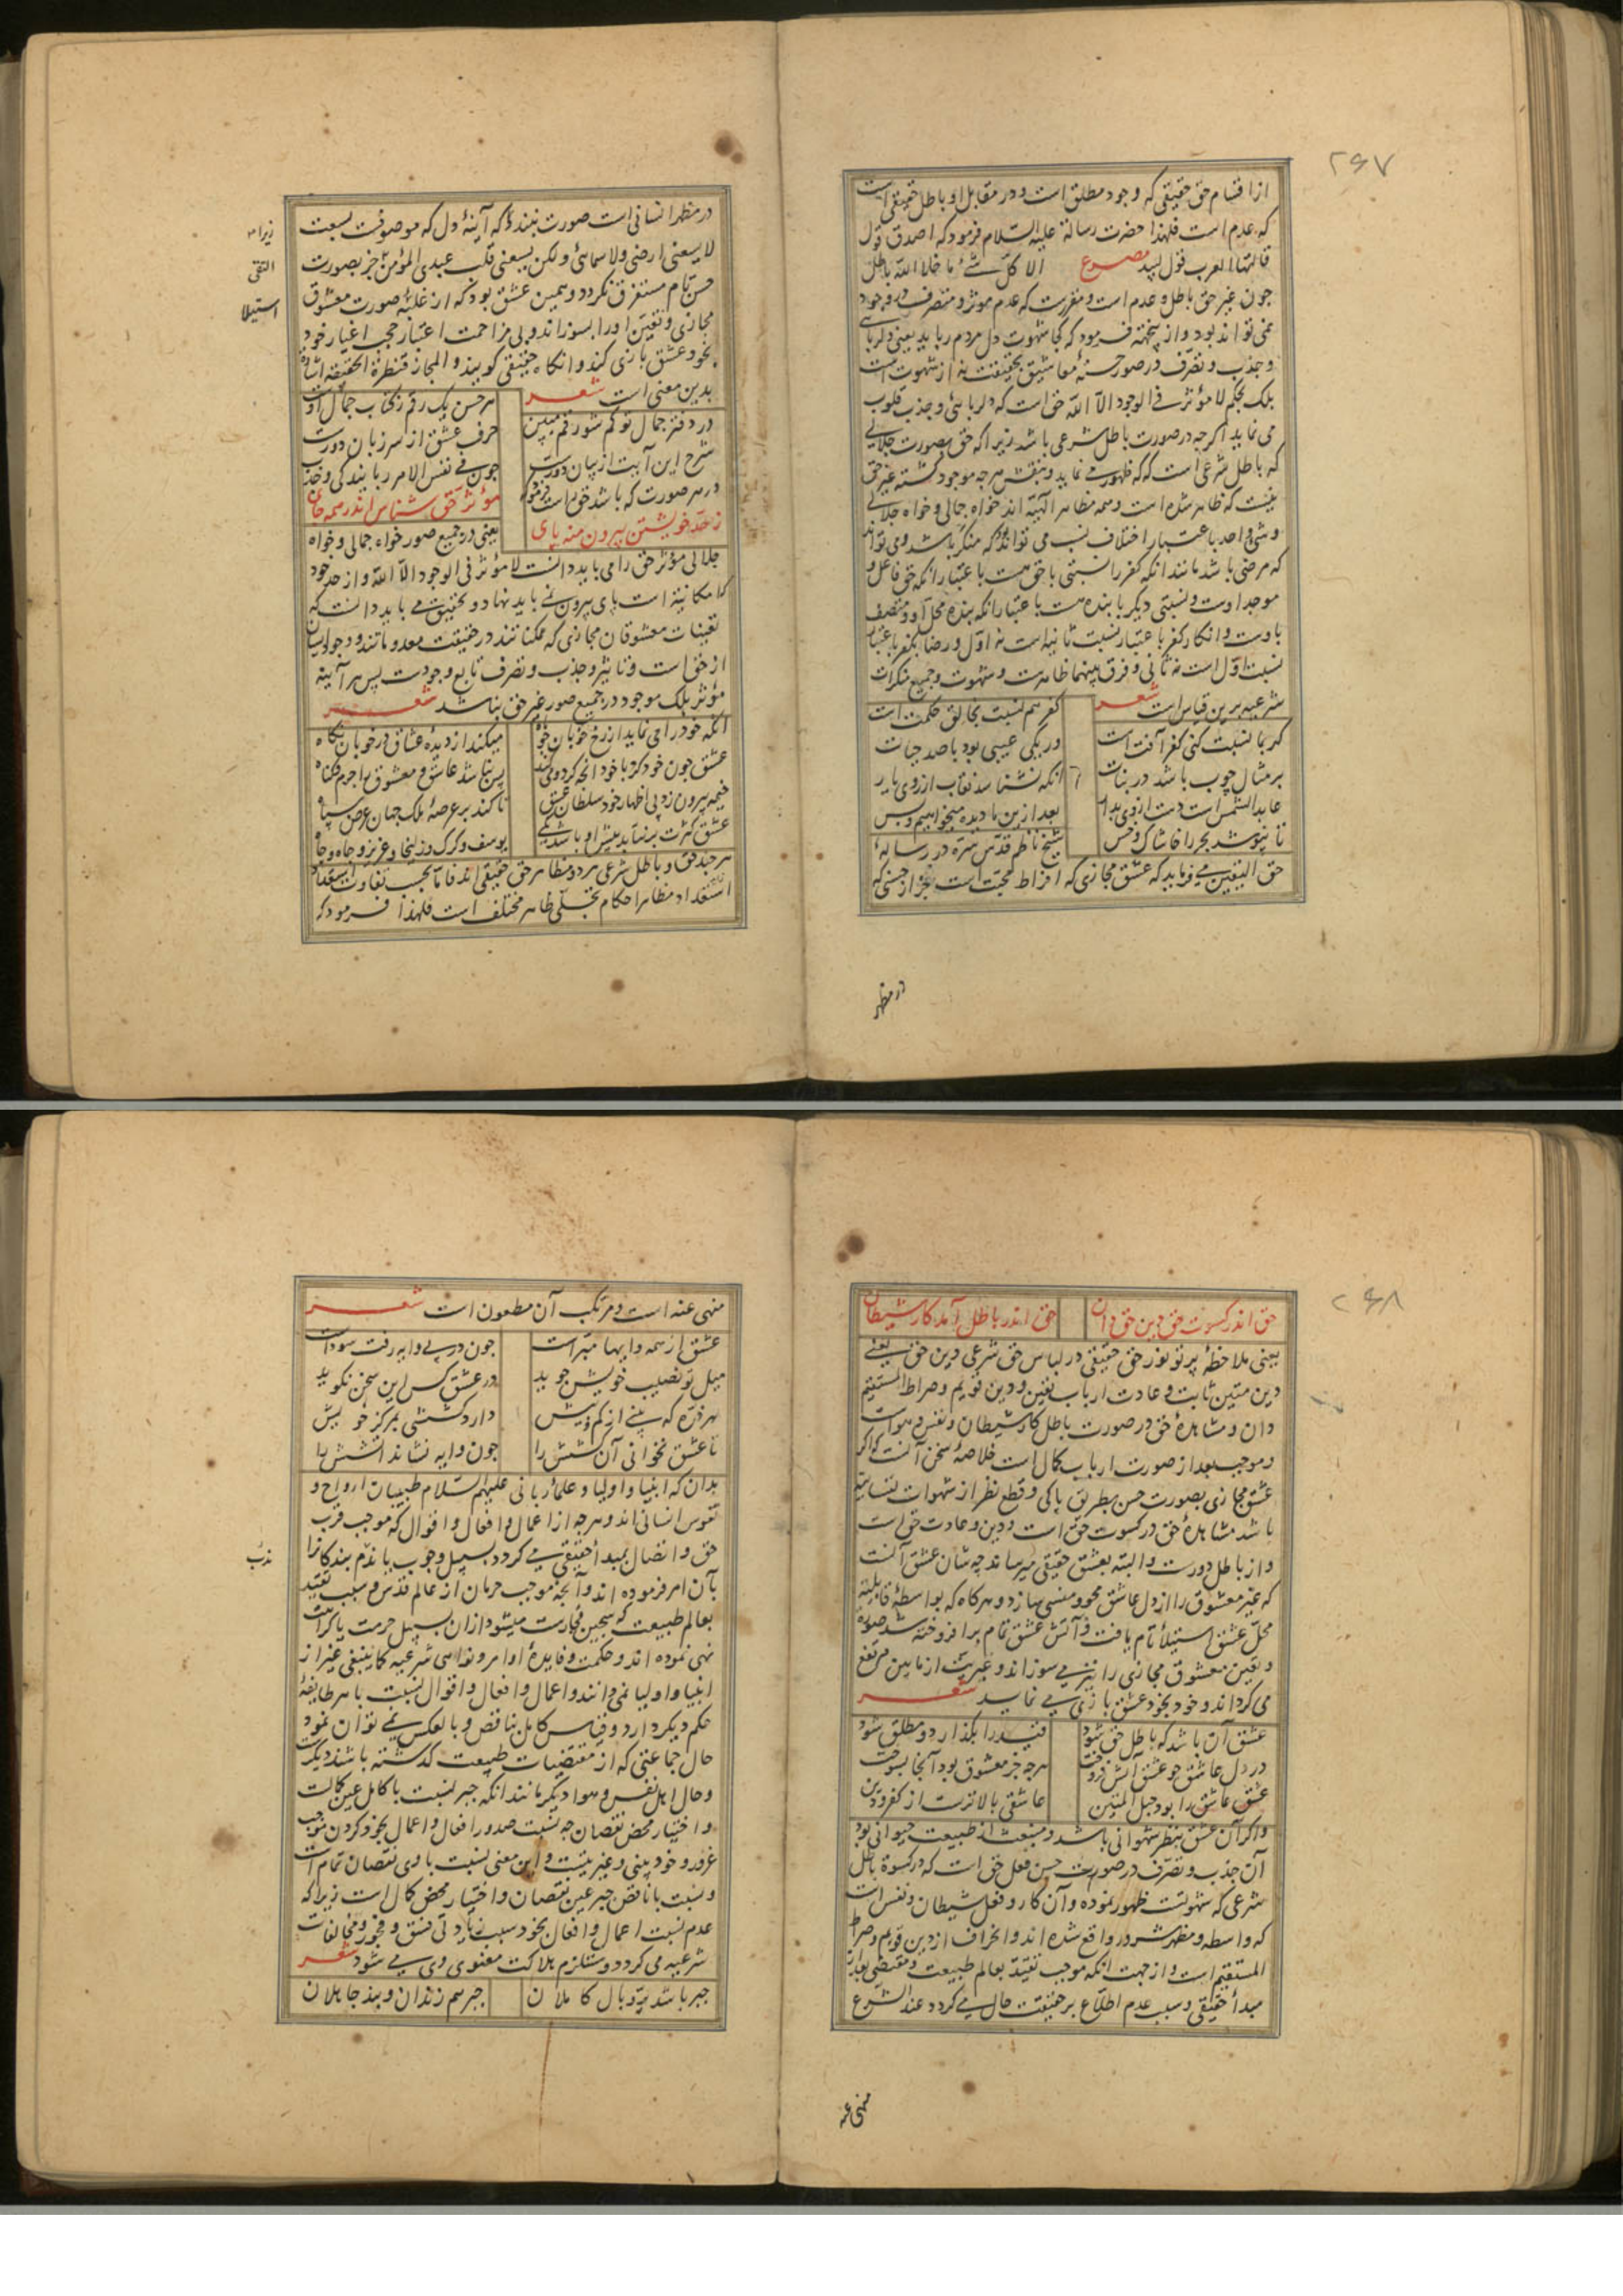 ۲۶۷
از اقسام حق حقیقی که وجود مطلق است و در مقابل او باطل حقیقی است
که عدم است فلهذا حضرت رسالة علیه السلام فرمود که اصدق قول
قالتها العرب قول لبید مصرع الا کل شئ ما خلا الله باطل
چون غیر حق باطل و عدم است و مقررست که عدم موثر و متصرف در وجود
نمی تواند بود و از پنجهته فرمود که کجا شهوت دل مردم رباید یعنی دلربایی
و جذب و تصرف در صور حسنهٔ معاشیق بحقیقت نه از شهوت است
بلک بحکم لا مؤثر فی الوجود الا الله حق است که دلربائی و جذب قلوب
می نماید اگر چه در صورت باطل شرعی باشد زیرا که حق بصورت جلالی
که باطل شرعی است که که ظهور می نماید و بنقش هر چه موجود گشته غیر حق
نیست که ظاهر شده است و همه مظاهر الهیه اند خواه جمالی و خواه جلالی
و شی واحد باعتبار اختلاف نسب می تواند که منکر باشد و می تواند
که مرضی باشد مانند انکه کفر را نسبتی با حق هست باعتبار انکه حق فاعل و
موجد اوست و نسبتی دیگر با بنده هست باعتبار انکه بنده محل او و متصف
باوست و انکار کفر باعتبار نسبت ثانیه است نه اول و رضا بکفر باعتبار
نسبت اول است نه ثانی و فرق بینهما ظاهرست و شهوت و جمیع منکرات
شرعیه برین قیاس است شعر
کفر هم نسبت بخالق حکمت است
کر بما نسبت کنی کفر آفت است
ور یکی عیبی بود با صد حیات
بر مثال چوب باشد در نبات
انکه نشناسد نقاب از روی یار
عابد الشمس است دست از وی بدار
بعد ازین ما دیده میخواهیم و بس
تا نپوشد بحر را خاشاک و خس
شیخ ناظم قدس سره در رسالهٔ
حق الیقین می فرماید که عشق مجازی که افراط محبت است بجز از حسنی که
در مظهر
در مظهر انسانی است صورت نبندد که آینهٔ دل که موصوفت بسعت
لا یسعنی ارضی ولا سمائی ولکن یسعنی قلب عبدی المؤمن جز بصورت
حسن تام مستغرق نکردد و همین عشق بود که از غلبهٔ صورت معشوق
مجازی و تعین او را بسوزاند و بی مزاحمت اعتبار حجب اغیار خود
بخود عشق بازی کند و انکاه حقیقی کویند و المجاز قنطرة الحقیقه اشاره
بدین معنی است شعر
زیرا
التقی
استیلا
هر حسن یک رقم ز کتاب جمال او
در دفتر جمال تو کم شو رقم مبین
حرف عشق از سر زبان دورست
شرح این آیت از بیان دورست
چون فی نفس الامر ربایندکی و جذب
در هر صورت که باشد حق است فرمود
مؤثر حق شناس اندر همه جای
ز حد خویشتن بیرون منه پای
یعنی در جمیع صور خواه جمالی و خواه
جلالی مؤثر حق را می باید دانست لا مؤثر فی الوجود الا الله و از حد خود
که امکانیه است پای بیرون نمی باید نهاد و بتحقیق می باید دانست که
تعینات معشوقان مجازی که ممکناتند در حقیقت معدوماتند و وجود ایشان
از حق است و تاثیر و جذب و تصرف تابع وجودست پس هر آینه
مؤثر بلک موجود در جمیع صور غیر حق نباشد شعر
انکه خود را می نماید از رخ خوبان چو ماه
میکند از دیده عشاق در خوبان نکاه
عشق چون خود کرد با خود انچه کرد و می کند
پس نباشد عاشق و معشوق را جرم و کناه
خیمه بیرون زد پی اظهار خود سلطان عشق
تا کند بر عرصهٔ ملک جهان عرض سپاه
عشق کثرت بر نتابد پیش او باشد یکی
یوسف و کرک و زلیخا و عزیز و جاه و چاه
هر چند حق و باطل شرعی هر دو مظاهر حق حقیقی اند فاما بحسب تفاوت استعداد
استعداد مظاهر احکام تجلی ظاهر مختلف است فلهذا فرمود که
۲۶۸
حق اندر کسوت حق دین حق دان
حق اندر باطل آمد کار شیطان
یعنی ملاحظهٔ پرتو نور حق حقیقی در لباس حق شرعی دین حق یعنی
دین متین ثابت و عادت ارباب یقین و دین قویم و صراط المستقیم
دان و مشاهدهٔ حق در صورت باطل کار شیطان و نفس و هواست
و موجب بعد از صورت ارباب کمال است خلاصهٔ سخن آنست که اکر
عشق مجازی بصورت حسن بطریق پاکی و قطع نظر از شهوات نفسانیه
باشد مشاهدهٔ حق در کسوت حق است و دین و عادت حق است
و از باطل دورست و البته بعشق حقیقی میرساند چه شان عشق آنست
که غیر معشوق را از دل عاشق محو و منسی سازد و هرکاه که بواسطهٔ قابلیت
محل عشق استیلاء تام یافت و آتش عشق تمام برافروخته شد صورة
و تعین معشوق مجازی را نیز می سوزاند و غیریت از ما بین مرتفع
می کرداند و خود بخود عشق بازی می نماید شعر
عشق آن باشد که باطل حق شود
قید را بکذارد و مطلق شود
در دل عاشق چو عشق آتش فروخت
هر چه جز معشوق بود آنجا بسوخت
عشق عاشق را بود حبل المتین
عاشقی بالاترست از کفر و دین
و اکر آن عشق بنظر شهوانی باشد و منبعث از طبیعت حیوانی بود
آن جذب و تصرف در صورت حسن فعل حق است که در کسوة باطل
شرعی که شهوتست ظهور نموده و آن کار و فعل شیطان و نفس است
که واسطه و مظهر شرور واقع شده اند و انحراف از دین قویم و صراط
المستقیم است و از جهت انکه موجب تقید بعالم طبیعت و مقتضی بعد از
مبدأ حقیقی و سبب عدم اطلاع بر حقیقت حال می کردد عند الشرع
منهی عنه
منهی عنه است و مرتکب آن مطعون است شعر
عشق از همه وایها مبراست
چون در پی وایه رفت سوداست
میل تو نصیب خویش جوید
در عشق کس این سخن نکوید
هر ذره که بینی از کم و بیش
دارد کششی بمرکز خویش
تا عشق نخوانی آن کشش را
چون وایه نشاند آتشش را
بدان که انبیا و اولیا و علماء ربانی علیهم السلام طبیبان ارواح و
نفوس انسانی اند و هر چه از اعمال و افعال و اقوال که موجب قرب
حق و اتصال بمبدأ حقیقی می کردد بسبیل وجوب یا ندب بندکانرا
ندب
بآن امر فرموده اند و آنچه موجب حرمان از عالم قدس و سبب تقید
بعالم طبیعت که سجین فجارست میشود از آن بسبیل حرمت یا کراهت
نهی نموده اند و حکمت و فایدهٔ اوامر و نواهی شرعیه کما ینبغی غیر از
انبیا و اولیا نمی دانند و اعمال و افعال و اقوال نسبت با هر طایفهٔ
حکم دیکر دارد و قیاس کامل بناقص و بالعکس نمی توان نمود
حال جماعتی که از مقتضیات طبیعت کذشته باشند دیکرست
و حال اهل نفس و هوا دیکر مانند انکه جبر نسبت با کامل عین کمالست
و اختیار محض نقصان چه نسبت صدور افعال و اعمال بخود کردن موجب
غرور و خود بینی و غیریتست و این معنی نسبت با وی نقصان تمام است
و نسبت با ناقص جبر عین نقصان و اختیار محض کمال است زیرا که
عدم نسبت اعمال و افعال بخود سبب زیادتی فسق و فجور و مخالفات
شرعیه می کردد و مستلزم هلاکت معنوی وی می شود شعر
جبر باشد پر و بال کاملان
جبر هم زندان و بند جاهلان